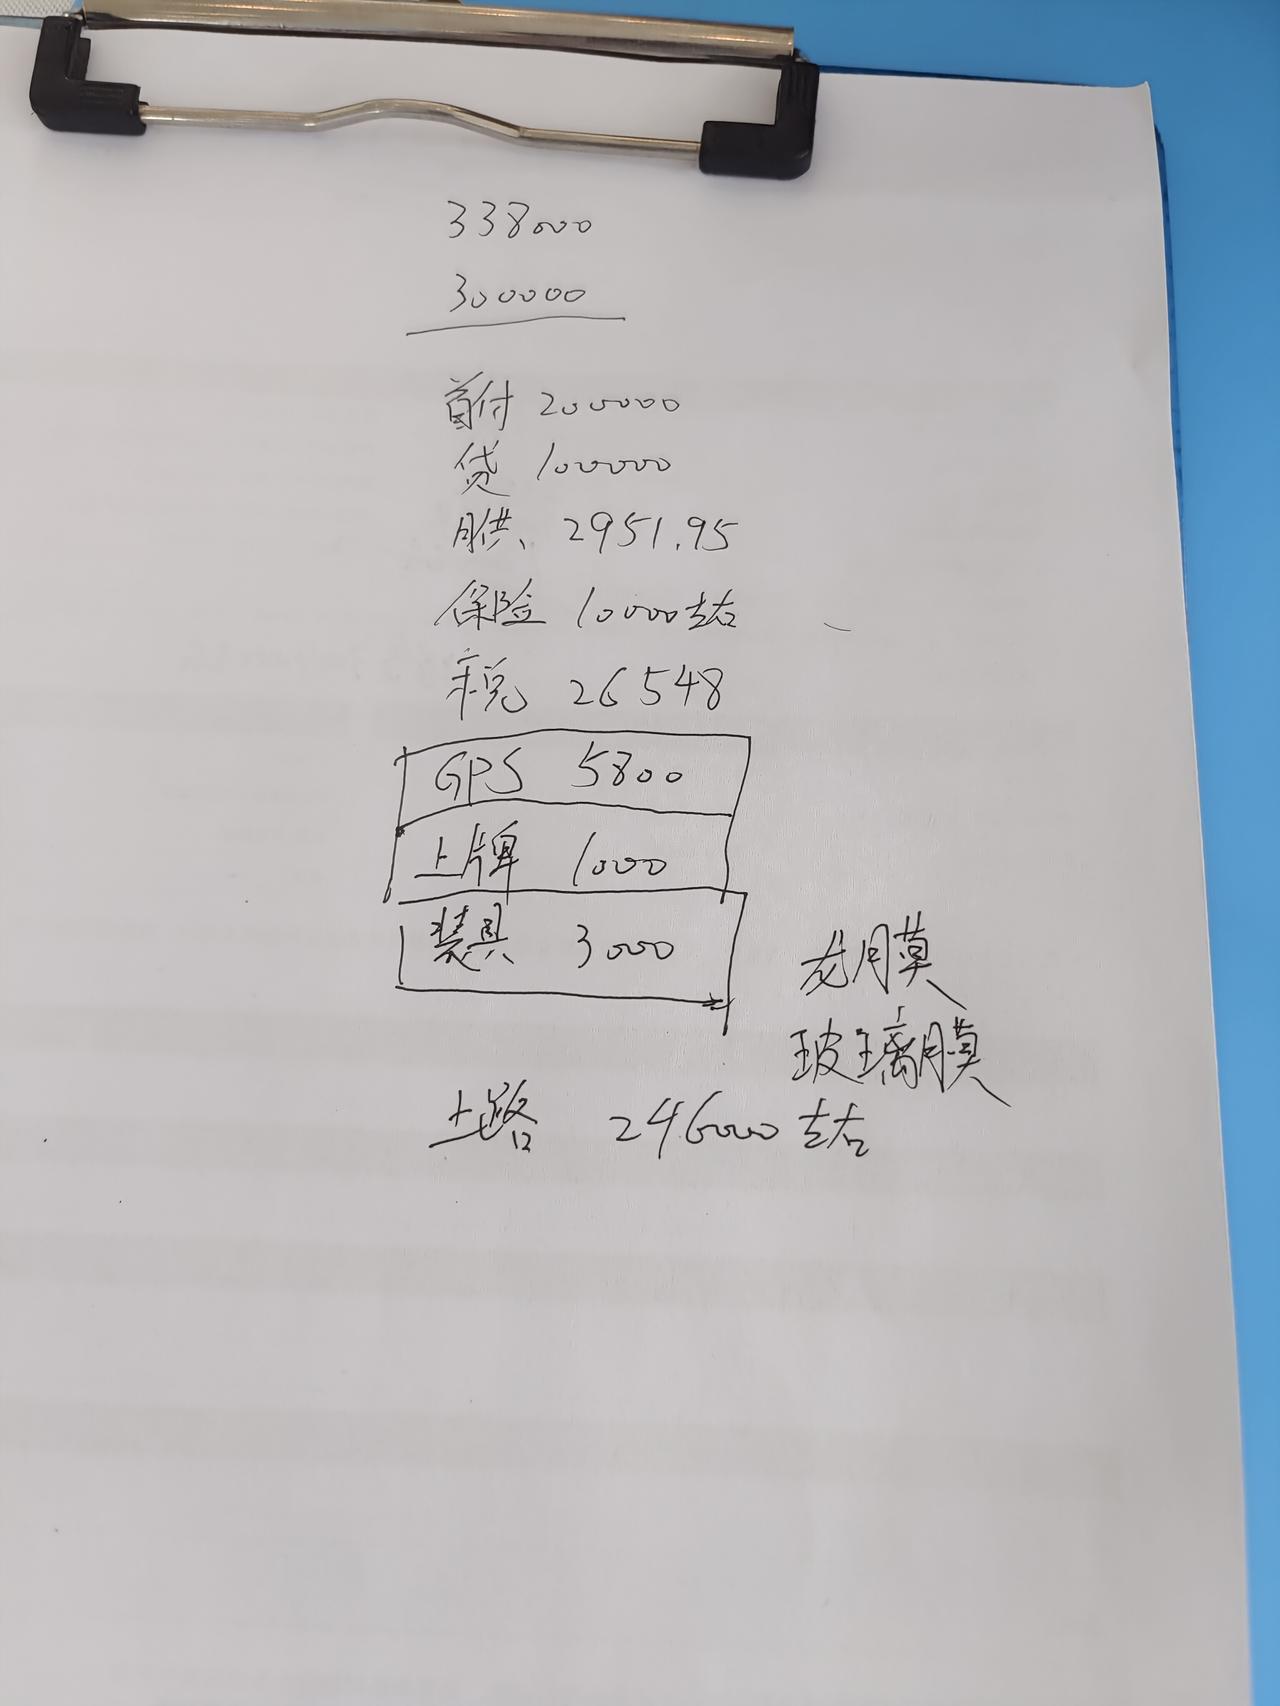 338000
300000
首付 200000
贷 100000
月供、2951.95
保险 10000左右
车税 26548
GPS 5800
上牌 1000
装具 3000
龙膜
玻璃膜
上路 246000左右